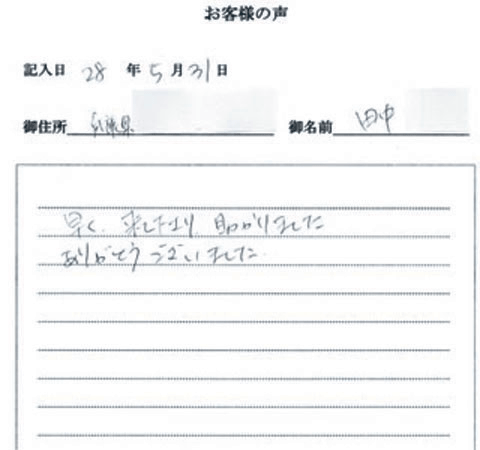 お客様の声
記入日 28 年 5 月 31 日
御住所 兵庫県 御名前 田中
早く、来て下さり、助かりました
ありがとうございました。